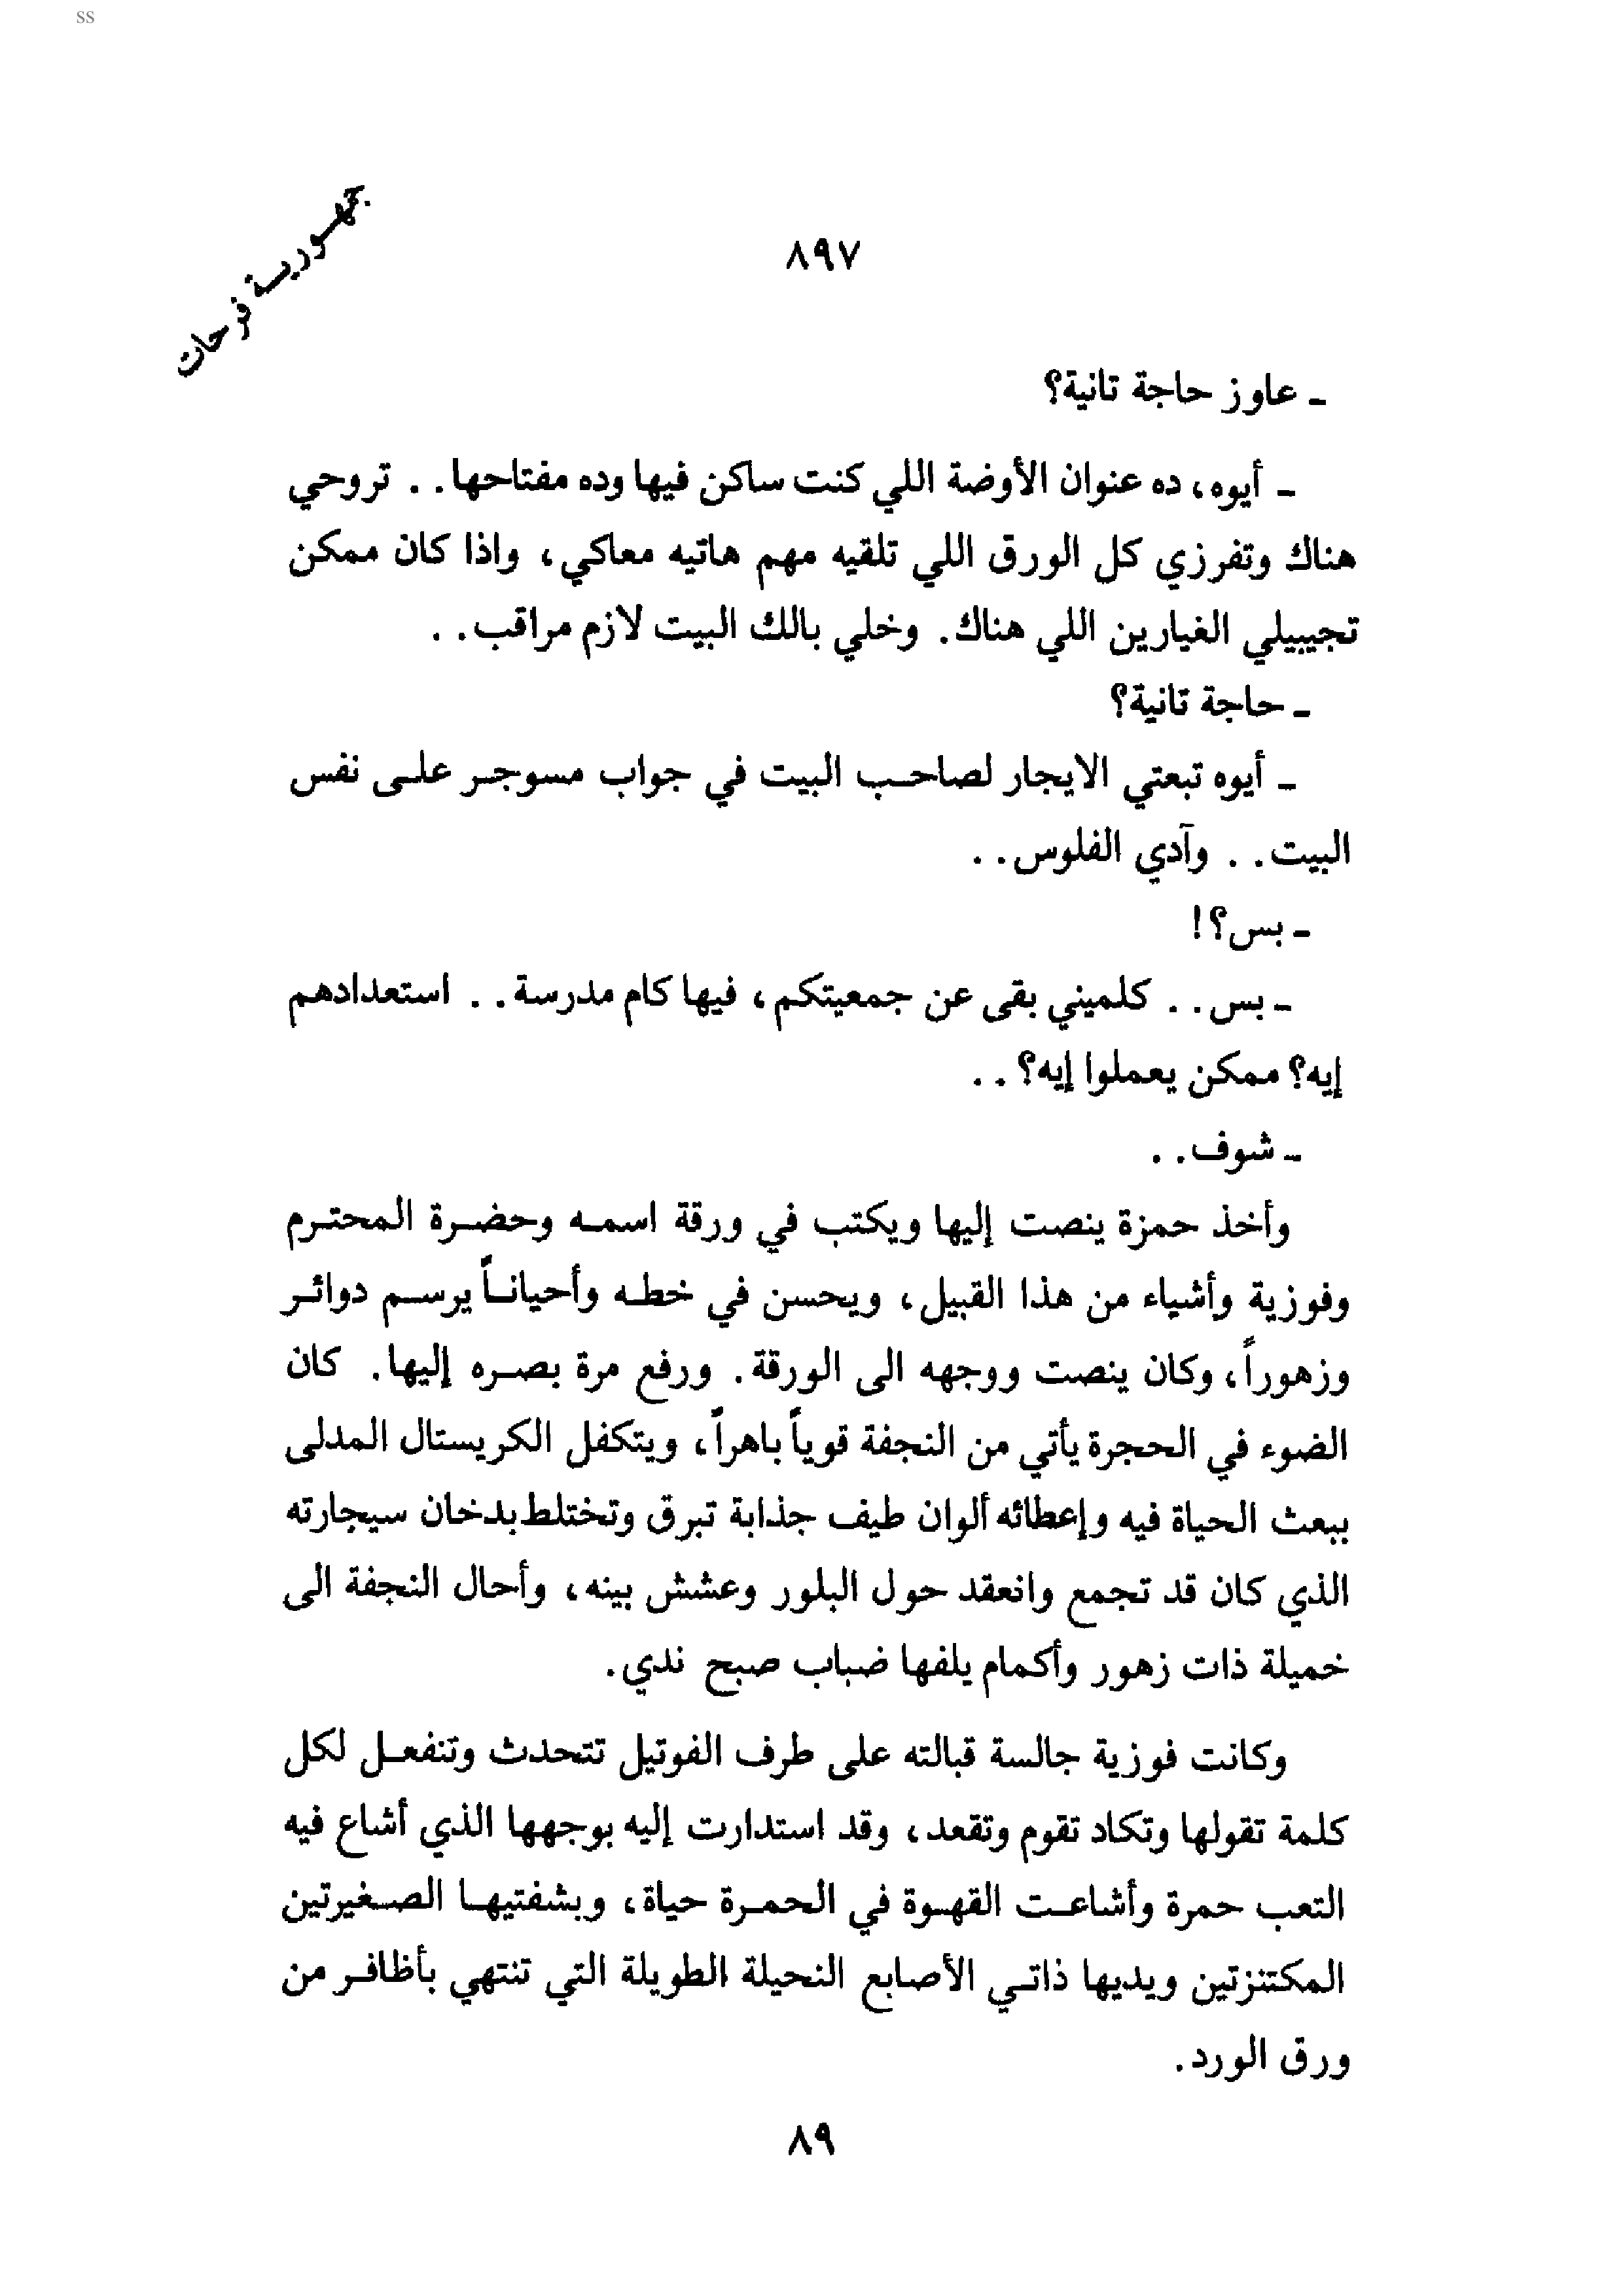 ss
جمهورية فرحات
٨٩٧
ـ عاوز حاجة تانية؟
ـ أيوه، ده عنوان الأوضة اللي كنت ساكن فيها وده مفتاحها. . تروحي
هناك وتفرزي كل الورق اللي تلقيه مهم هاتيه معاكي، واذا كان ممكن
تجيبيلي الغيارين اللي هناك. وخلي بالك البيت لازم مراقب. .
ـ حاجة تانية؟
ـ أيوه تبعتي الايجار لصاحب البيت في جواب مسوجر على نفس
البيت. . وآدي الفلوس. .
ـ بس؟!
ـ بس. . كلميني بقى عن جمعيتكم، فيها كام مدرسة. . استعدادهم
إيه؟ ممكن يعملوا إيه؟ . .
ـ شوف. .
وأخذ حمزة ينصت إليها ويكتب في ورقة اسمه وحضرة المحترم
وفوزية وأشياء من هذا القبيل، ويحسن في خطه وأحياناً يرسم دوائر
وزهوراً، وكان ينصت ووجهه الى الورقة. ورفع مرة بصره إليها. كان
الضوء في الحجرة يأتي من النجفة قوياً باهراً، ويتكفل الكريستال المدلى
ببعث الحياة فيه وإعطائه ألوان طيف جذابة تبرق وتختلط بدخان سيجارته
الذي كان قد تجمع وانعقد حول البلور وعشش بينه، وأحال النجفة الى
خميلة ذات زهور وأكمام يلفها ضباب صبح ندي.
وكانت فوزية جالسة قبالته على طرف الفوتيل تتحدث وتنفعل لكل
كلمة تقولها وتكاد تقوم وتقعد، وقد استدارت إليه بوجهها الذي أشاع فيه
التعب حمرة وأشاعت القهوة في الحمرة حياة، وبشفتيها الصغيرتين
المكتنزتين ويديها ذاتي الأصابع النحيلة الطويلة التي تنتهي بأظافر من
ورق الورد.
٨٩